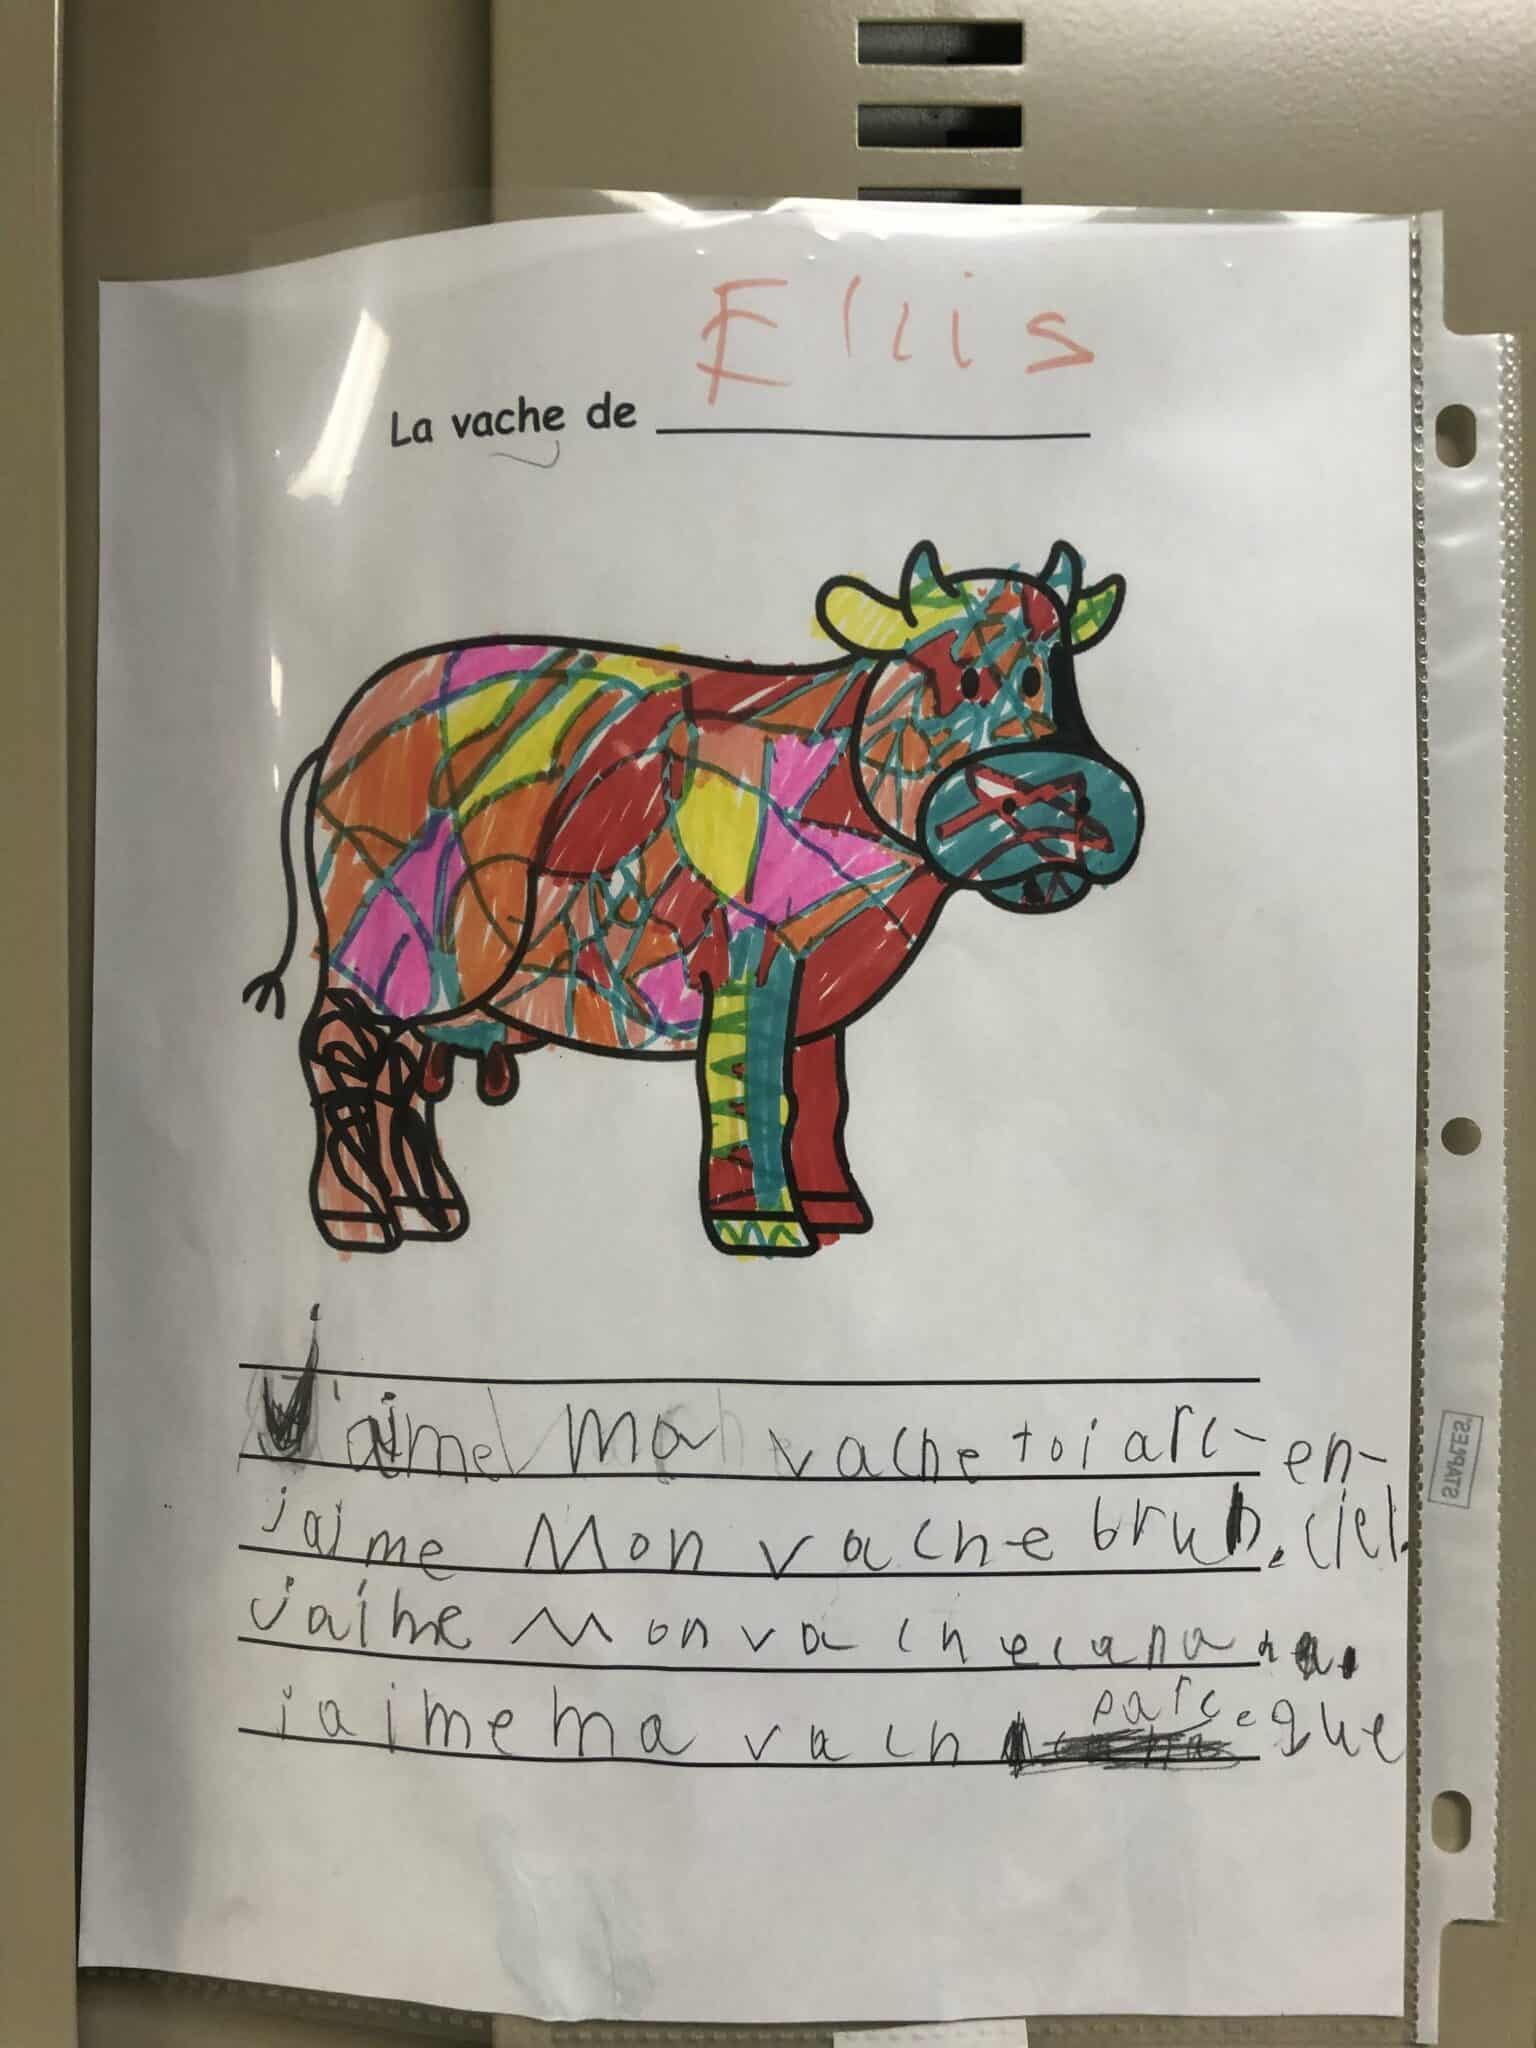 Ellis
La vache de
J'aime ma vache toi arc-en-
jaime Mon vache brun. ciel.
jaime Mon vache cana
jaime ma vach parceque
STAPLES